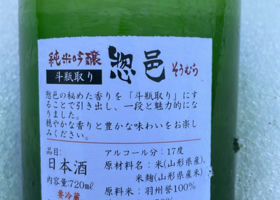 純米吟醸
斗瓶取り
惣邑
そうむら
惣邑の秘めた香りを「斗瓶取り」にす
ることで引き出し、一段と魅力的にな
りました。
穏やかな香りと豊かな味わいをお楽し
みください。
品目:
日本酒
内容量720ml
要冷蔵
アルコール分:17度
原材料名:米(山形県産),
米麹(山形県産米)
原料米:羽州誉100%